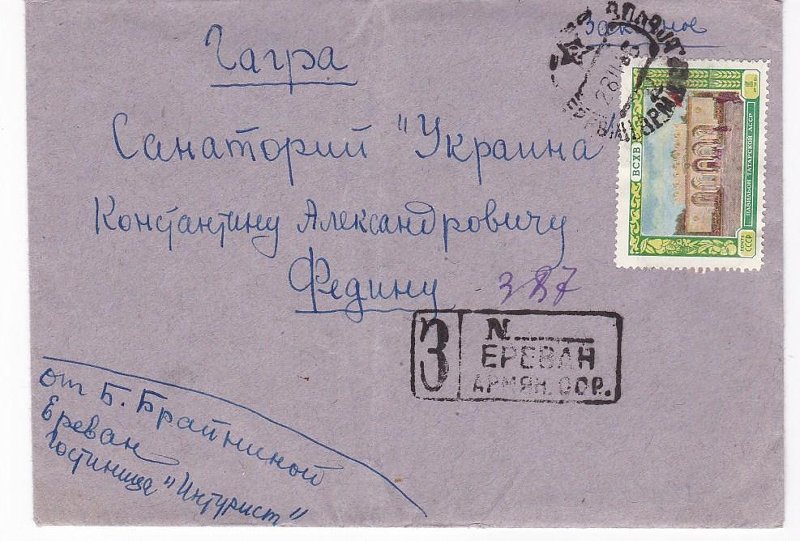 Заказное
Гагра
Санаторий "Украина
Константину Александровичу
Федину
387
З
N
ЕРЕВАН
АРМЯН. ССР.
от Б. Брайниной
Ереван
Гостиница "Интурист"
ВСХВ
ПАВИЛЬОН ТАТАРСКОЙ АССР
СССР